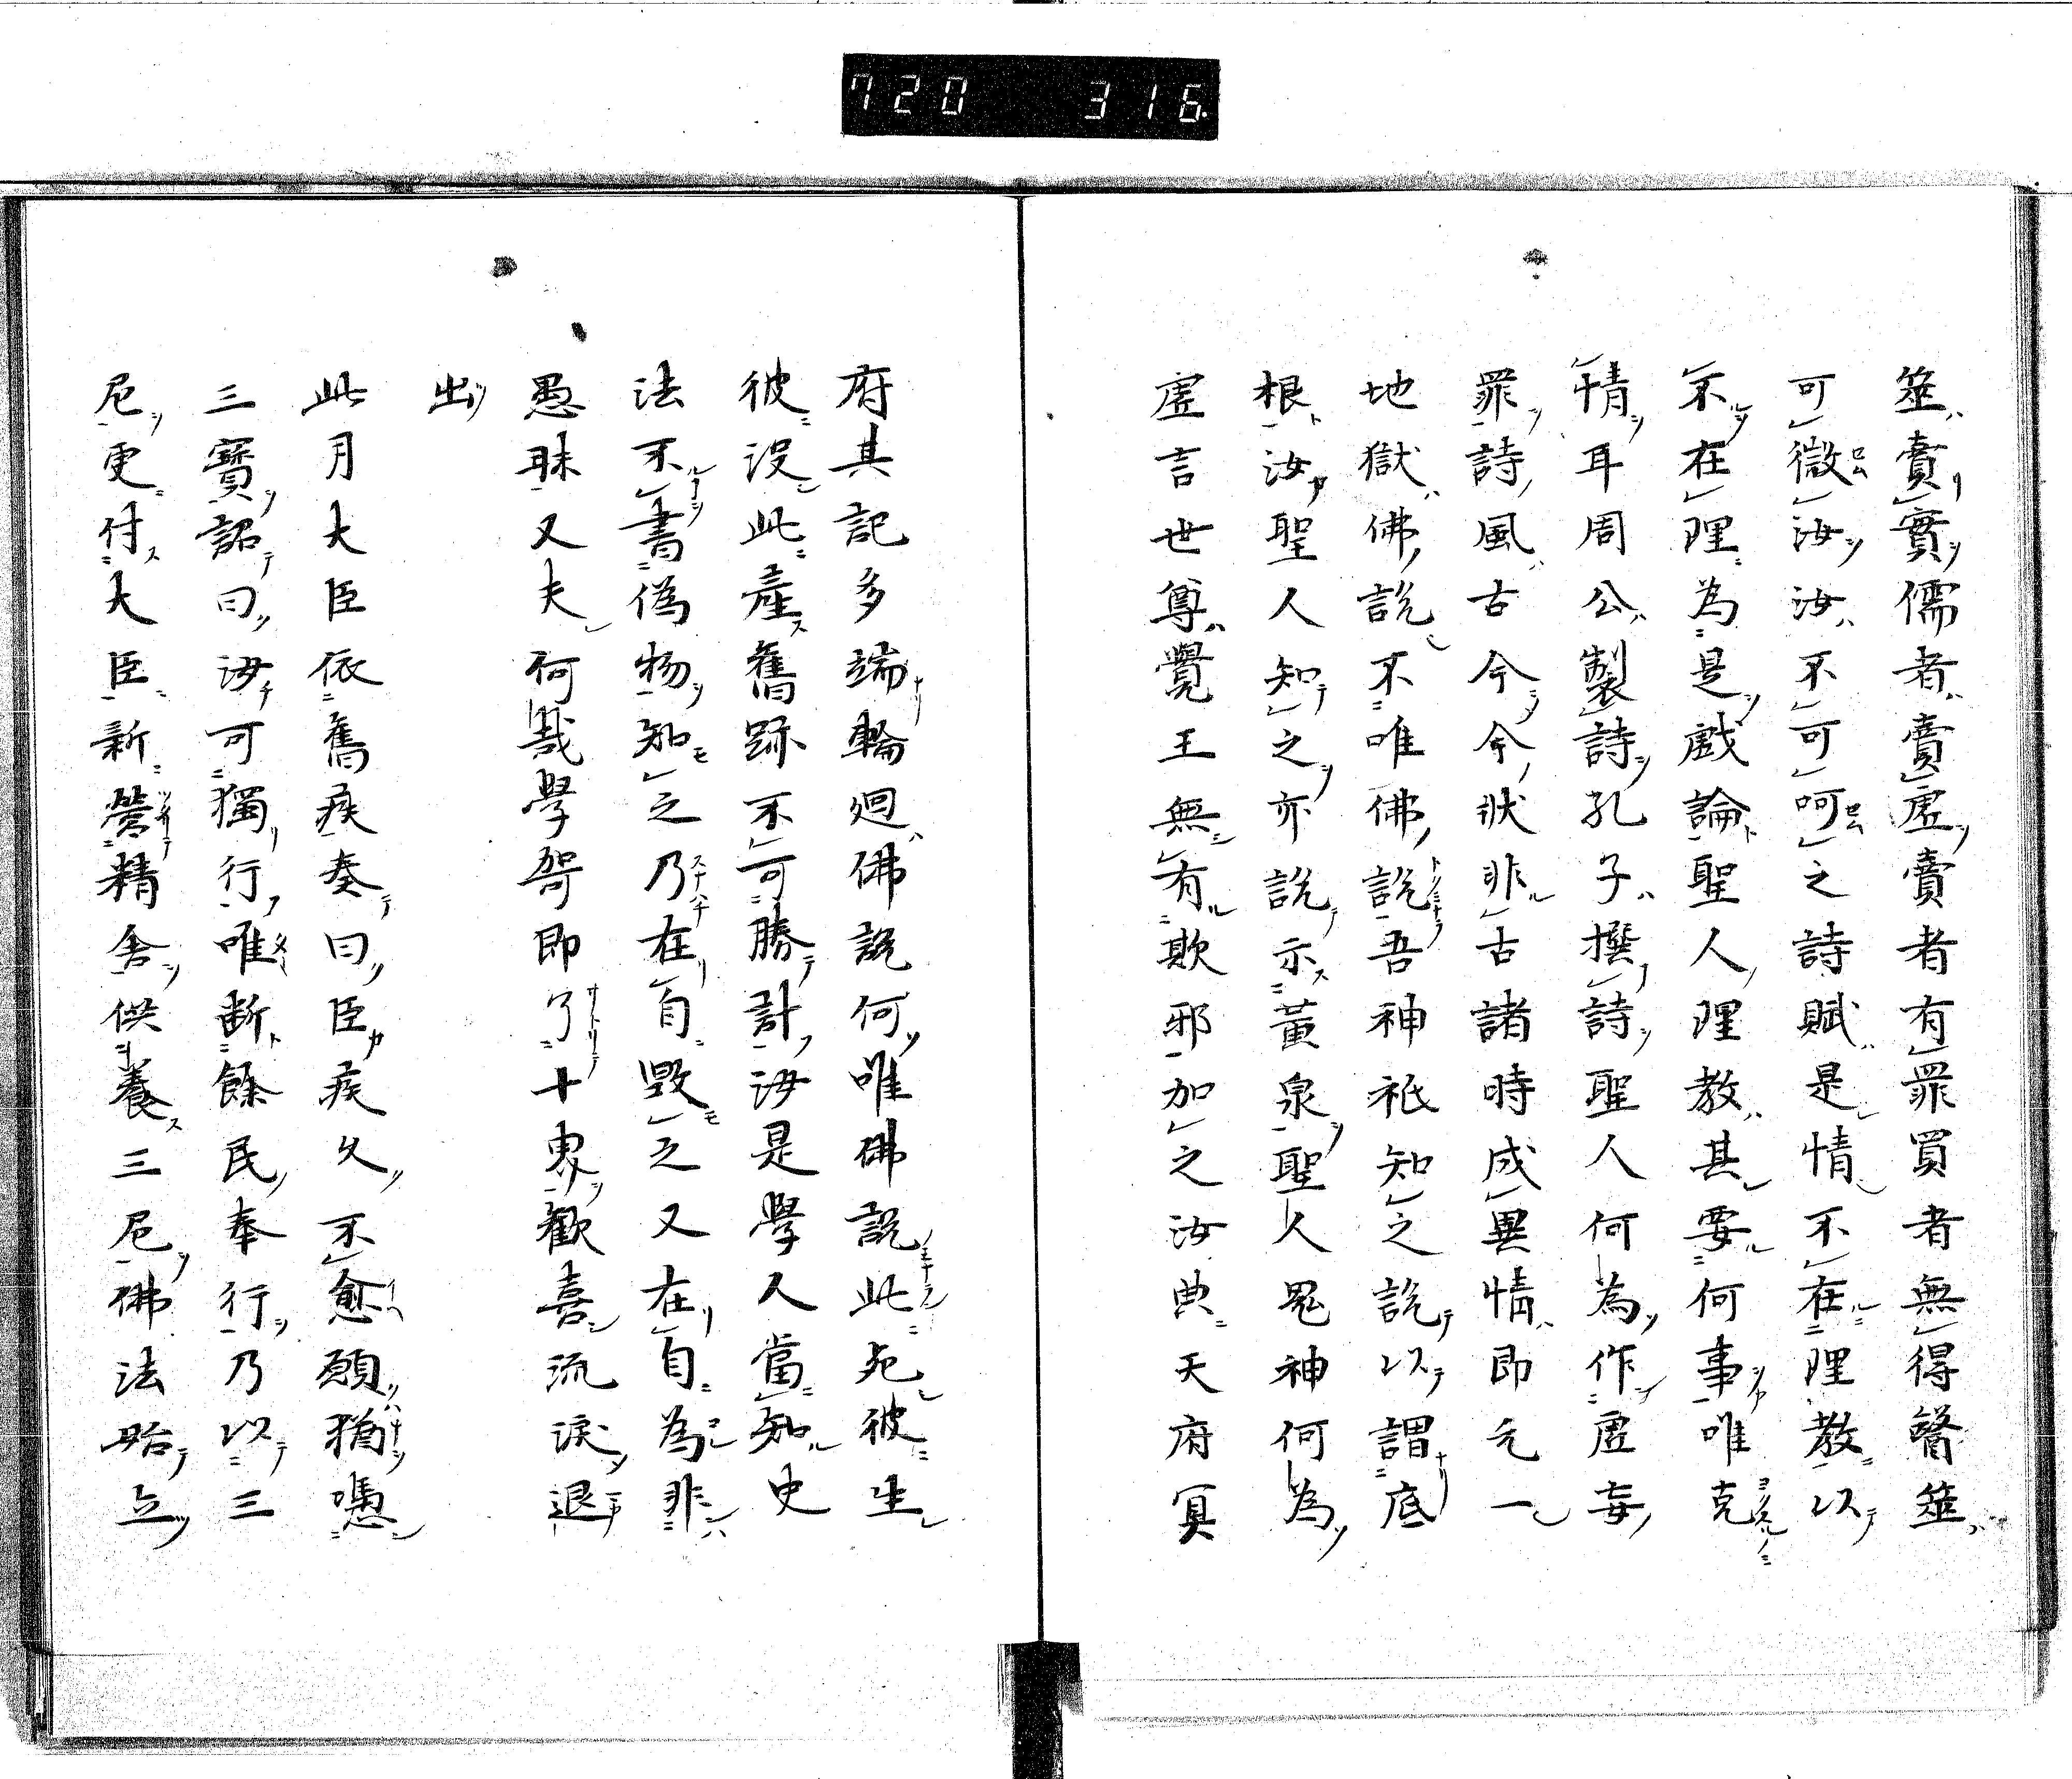 720 316
筮賣實儒者賣虚賣者有罪買者無得醫筮
可微汝汝不可呵之詩賦是情不在理教以
不在理為是戯論聖人理教其要何事唯克
情耳周公製詩孔子撰詩聖人何為作虚妄
罪詩風古今今状非古諸時成異情即元一
地獄佛説不唯佛説吾神祇知之説以謂底
根汝聖人知之亦説示黄泉聖人鬼神何為
虚言世尊覺王無有欺邪加之汝典天府冥
府其記多端輪廻佛説何唯佛説此死彼生
彼没此産舊跡不可勝計汝是學人當知史
法不書偽物知之乃在自毀之又在自為非
愚昧又夫何哉學哿即了十界歡喜流涙退
出
此月大臣依舊疾奏曰臣疾久不愈願猶憑
三寶詔曰汝可獨行唯断餘民奉行乃以三
尼更付大臣新營精舎供養三尼佛法始立